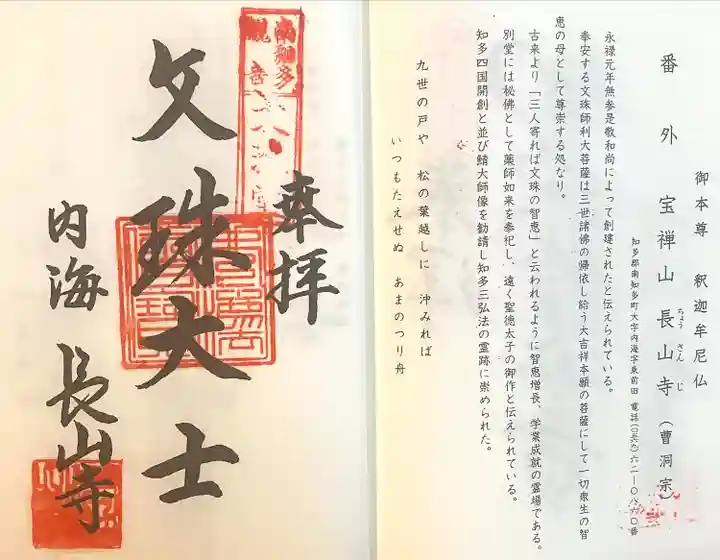 御本尊 釈迦牟尼仏
番外 宝禅山長山寺(曹洞宗)
ちょう さん じ
知多郡南知多町大字内海字東前田 電話(〇五六九)六二―〇八六〇番
永禄元年無参是敬和尚によって創建されたと伝えられている。
奉安する文珠師利大菩薩は三世諸佛の帰依し給う大吉祥本願の菩薩にして一切衆生の智
恵の母として尊崇する処なり。
古来より「三人寄れば文珠の智恵」と云われるように智恵増長、学業成就の霊場である。
別堂には秘佛として薬師如来を奉祀し、遠く聖徳太子の御作と伝えられている。
知多四国開創と並び鯖大師像を勧請し知多三弘法の霊跡に崇められた。
九世の戸や 松の葉越しに 沖みれば
いつもたえせぬ あまのつり舟
奉拝
南知多
観音
文珠大士
内海 長山寺